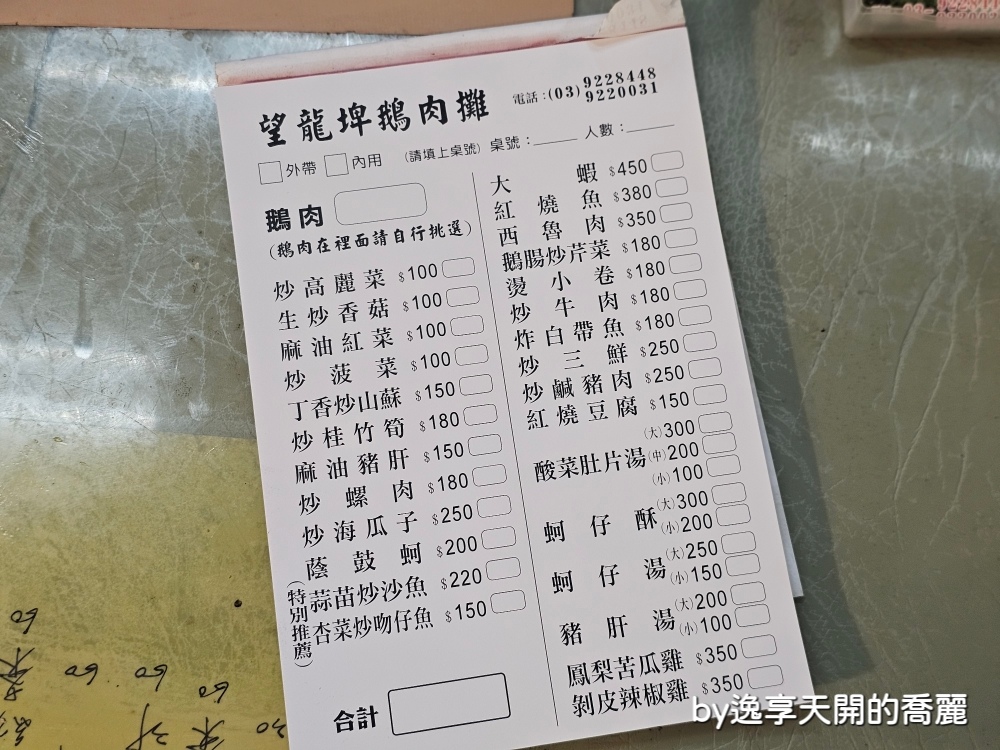 望龍埤鵝肉攤
電話:(03)9228448
9220031
外帶 內用 (請填上桌號) 桌號: 人數:
鵝肉
(鵝肉在裡面請自行挑選)
炒高麗菜 $100
生炒香菇 $100
麻油紅菜 $100
炒菠菜 $100
丁香炒山蘇 $150
炒桂竹筍 $180
麻油豬肝 $150
炒螺肉 $180
炒海瓜子 $250
蔭鼓蚵 $200
(特別推薦)
蒜苗炒沙魚 $220
杏菜炒吻仔魚 $150
合計
大蝦 $450
紅燒魚 $380
西魯肉 $350
鵝腸炒芹菜 $180
燙小卷 $180
炒牛肉 $180
炸白帶魚 $180
炒三鮮 $250
炒鹹豬肉 $250
紅燒豆腐 $150
酸菜肚片湯 (大)300
(中)200
(小)100
蚵仔酥 (大)300
(小)200
蚵仔湯 (大)250
(小)150
豬肝湯 (大)200
(小)100
鳳梨苦瓜雞 $350
剝皮辣椒雞 $350
by逸享天開的喬麗